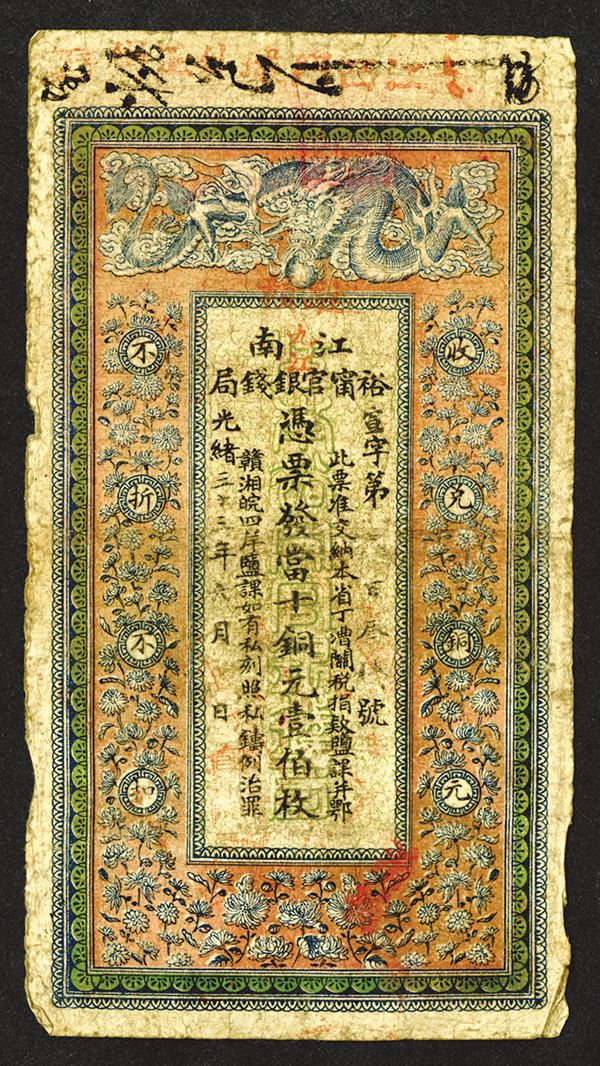 江南
裕甯官銀錢局
收兌銅元
宣字第百叁號
此票准交納本省丁漕關稅捐欵鹽課并鄂
憑票發當十銅元壹佰枚
贛湘皖四岸鹽課如有私刻照私鑄例治罪
光緒三十三年月日
不折不扣